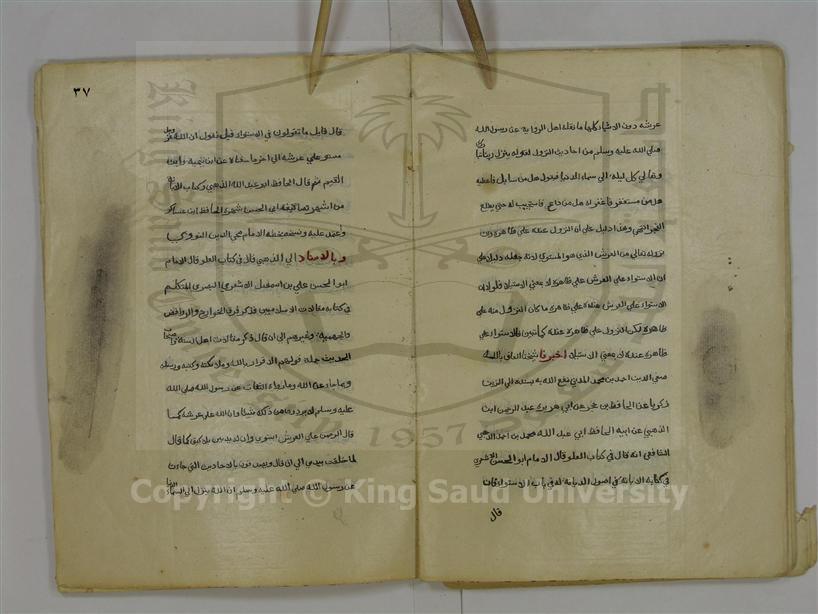 عرشه دون الاشياء كلها ما نقله اهل الرواية عن رسول الله
صلى الله عليه وسلم من احاديث النزول كقوله ينزل ربنا تبارك
وتعالى كل ليلة الى سماء الدنيا فيقول هل من سايل فاعطيه
هل من مستغفر فاغفر له هل من داع فاستجيب له حتى يطلع
الفجر انتهى وهذا دليل على ان النزول عنده على ظاهره دون
نزوله تعالى من العرش الذي هو المستوي لانه جعله دليلا على
ان الاستواء على العرش على ظاهره لا بمعنى الاستيلاء فلولا ان
الاستواء على العرش عنده على ظاهره ما كان النزول منه على
ظاهره لكن النزول على ظاهره عنده كما تبين فالاستواء على
ظاهره عنده لا بمعنى الاستيلاء اخبرنا شيخنا العارف بالله
صفي الدين احمد بن محمد المدني نفع الله به بسنده الى الزين
زكريا عن الحافظ بن حجر عن ابي هريرة عبد الرحمن ابن
الذهبي عن ابيه الحافظ ابي عبد الله محمد بن احمد الذهبي
الشافعي انه قال في كتاب العلو قال الامام ابو الحسن الاشعري
في كتابه الابانة في اصول الديانة له في باب الاستواء فان
قال
٣٧
قال قايل ما تقولون في الاستواء قيل نقول ان الله عز وجل
مستو على عرشه الى اخر ما نقلا عن ابن تيمية وابن
القيم ثم قال الحافظ ابو عبد الله الذهبي وكتاب الابانة
من اشهر تصانيفه ابي الحسن شهره الحافظ ابن عساكر
واعتمد عليه ونسخه بخطه الامام محي الدين النووي
وبالاسناد الى الذهبي قال في كتاب العلو قال الامام
ابو الحسن علي بن اسمعيل الاشعري البصري المتكلم
في كتابه مقالات الاسلاميين فذكر فرق الخوارج والروافض
والجهمية وغيرهم الى ان قال ذكر مقالات اهل السنة واصحاب
الحديث جملة قولهم الاقرار بالله وملائكته وكتبه ورسله
وبما جاء عن الله وما رواه الثقات عن رسول الله صلى الله
عليه وسلم لا يردون من ذلك شيئا وان الله على عرشه كما
قال الرحمن على العرش استوى وان له يدين بلا كيف كما قال
لما خلقت بيدي الى ان قال ويصدقون بالاحاديث التي جاءت
عن رسول الله صلى الله عليه وسلم ان الله ينزل الى السماء الدنيا
Copyright © King Saud University
1957